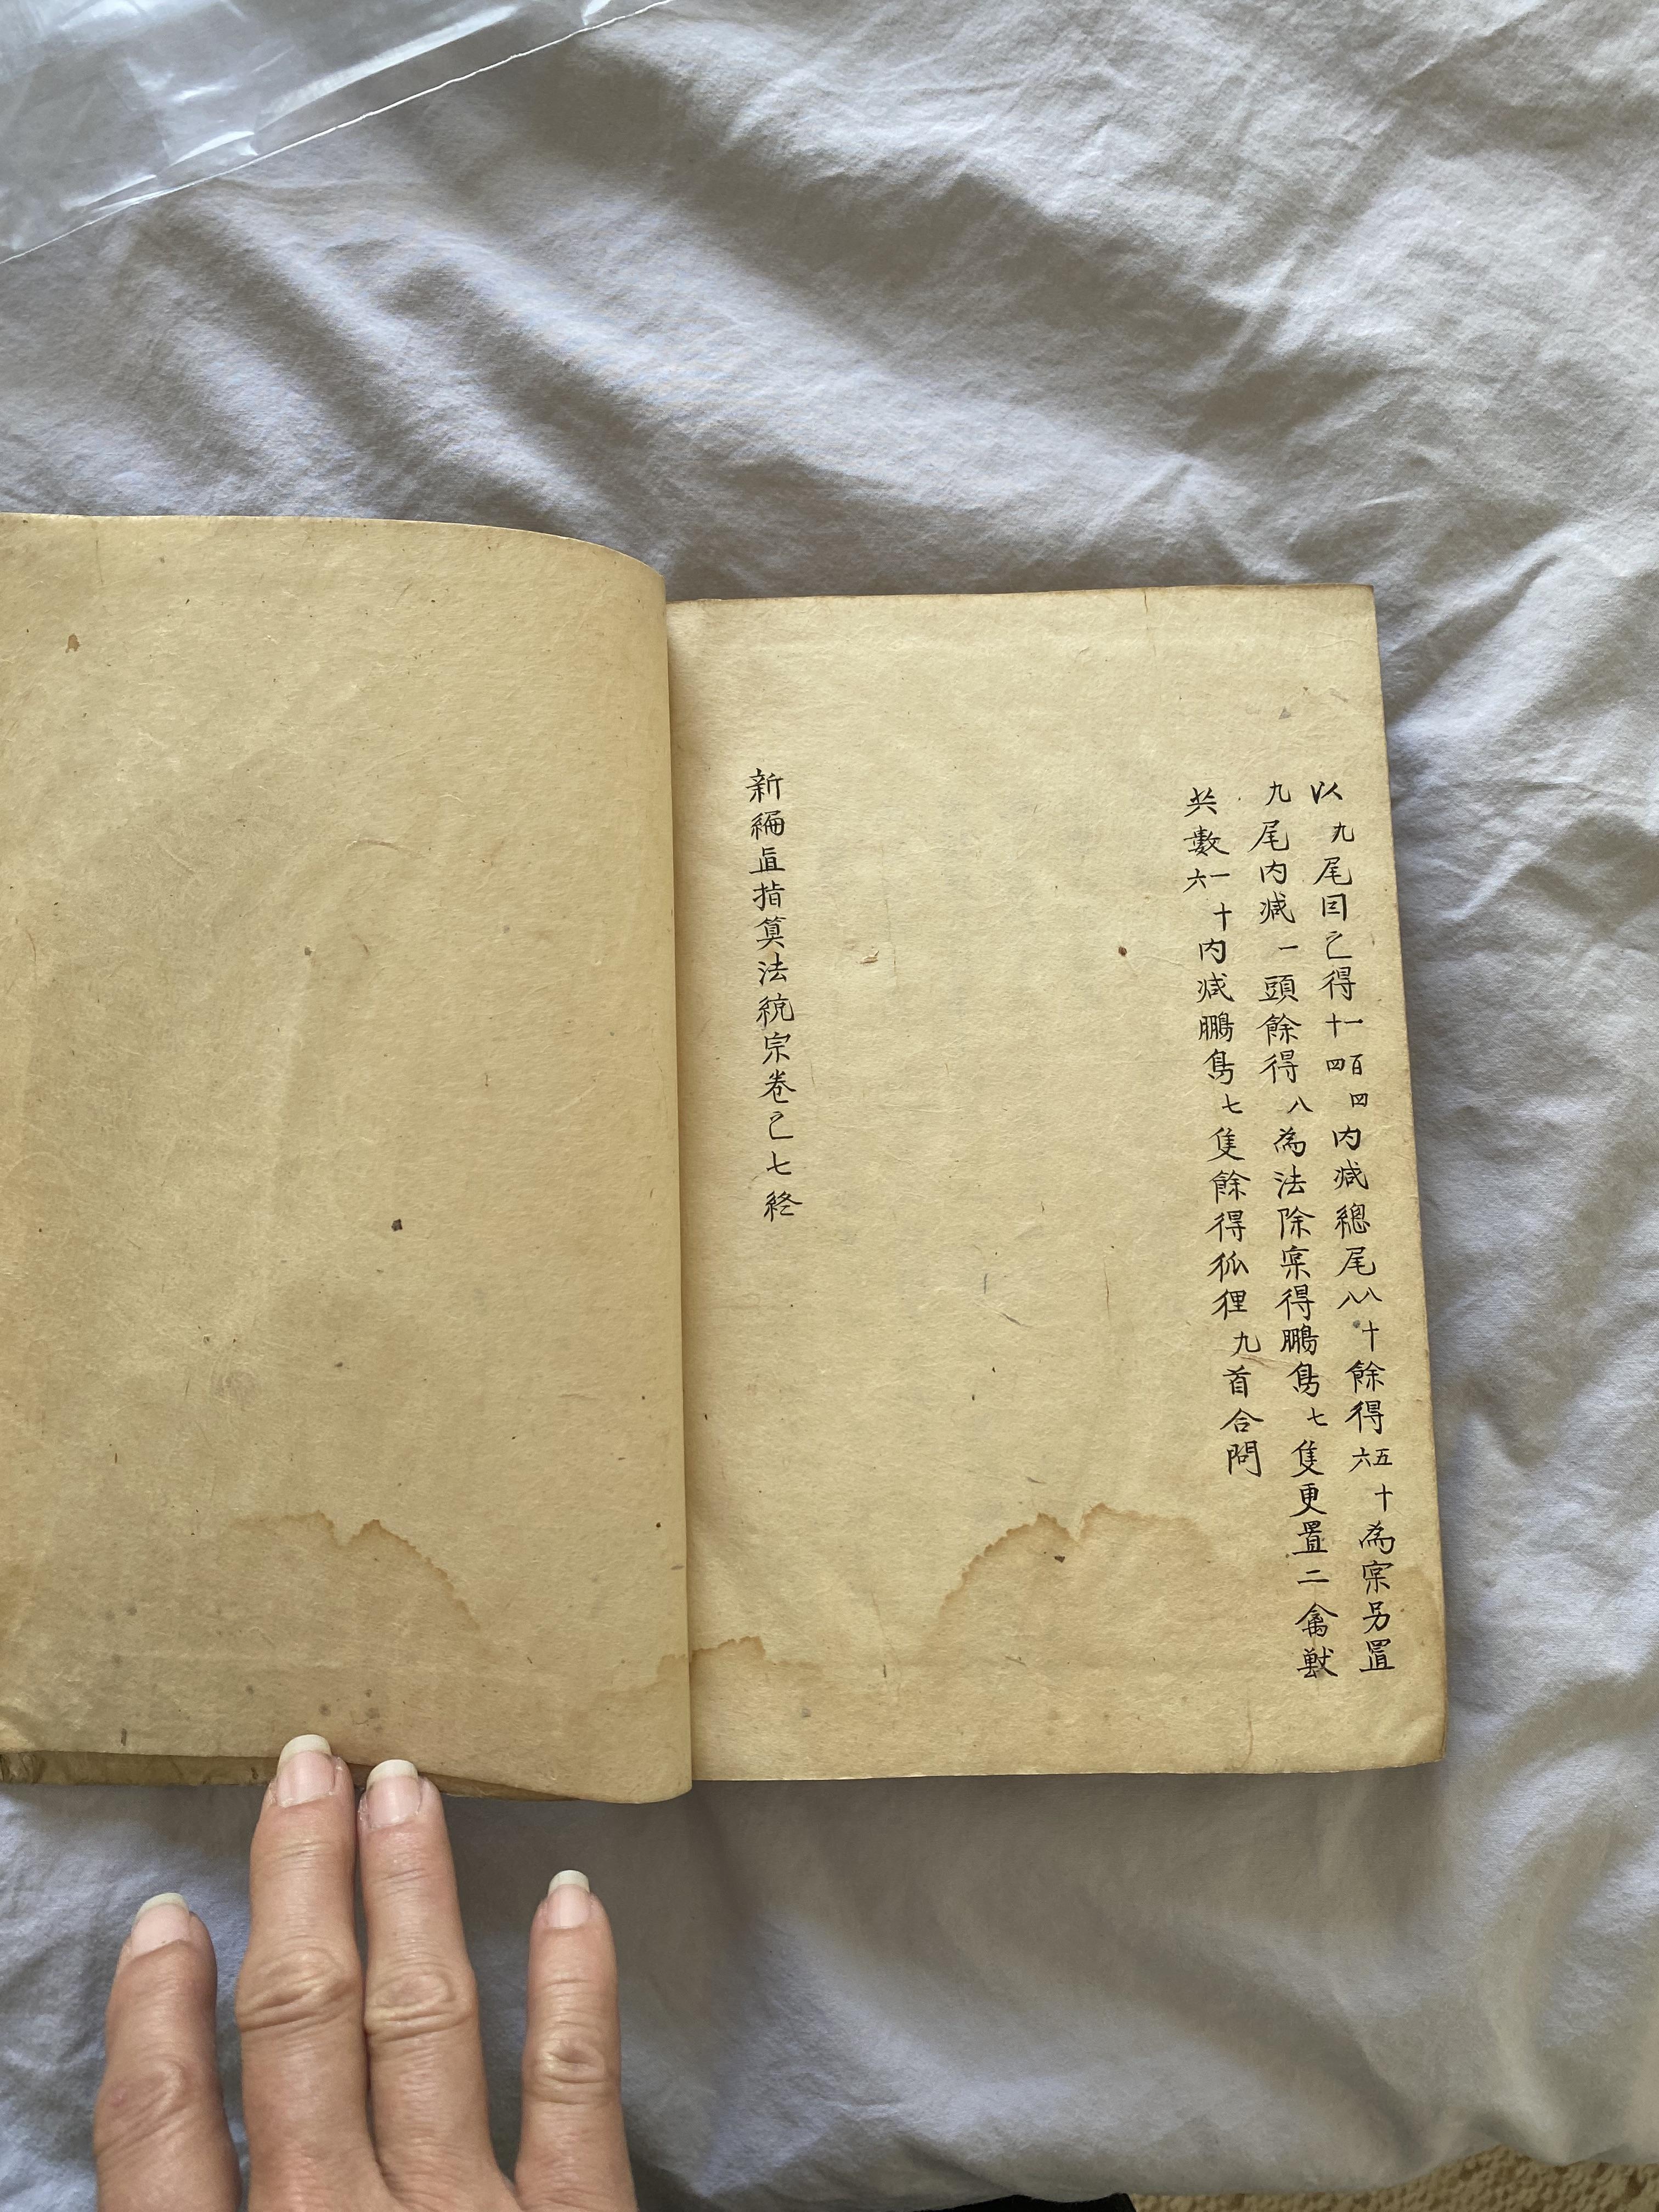 以九尾因之得一百四十四内减總尾八十八餘得五十六為宲另置
九尾内减一頭餘得八為法除宲得鵬鳥七隻更置二禽獸
共數一十六内减鵬鳥七隻餘得狐狸九首合問
新編直指算法統宗卷之七終